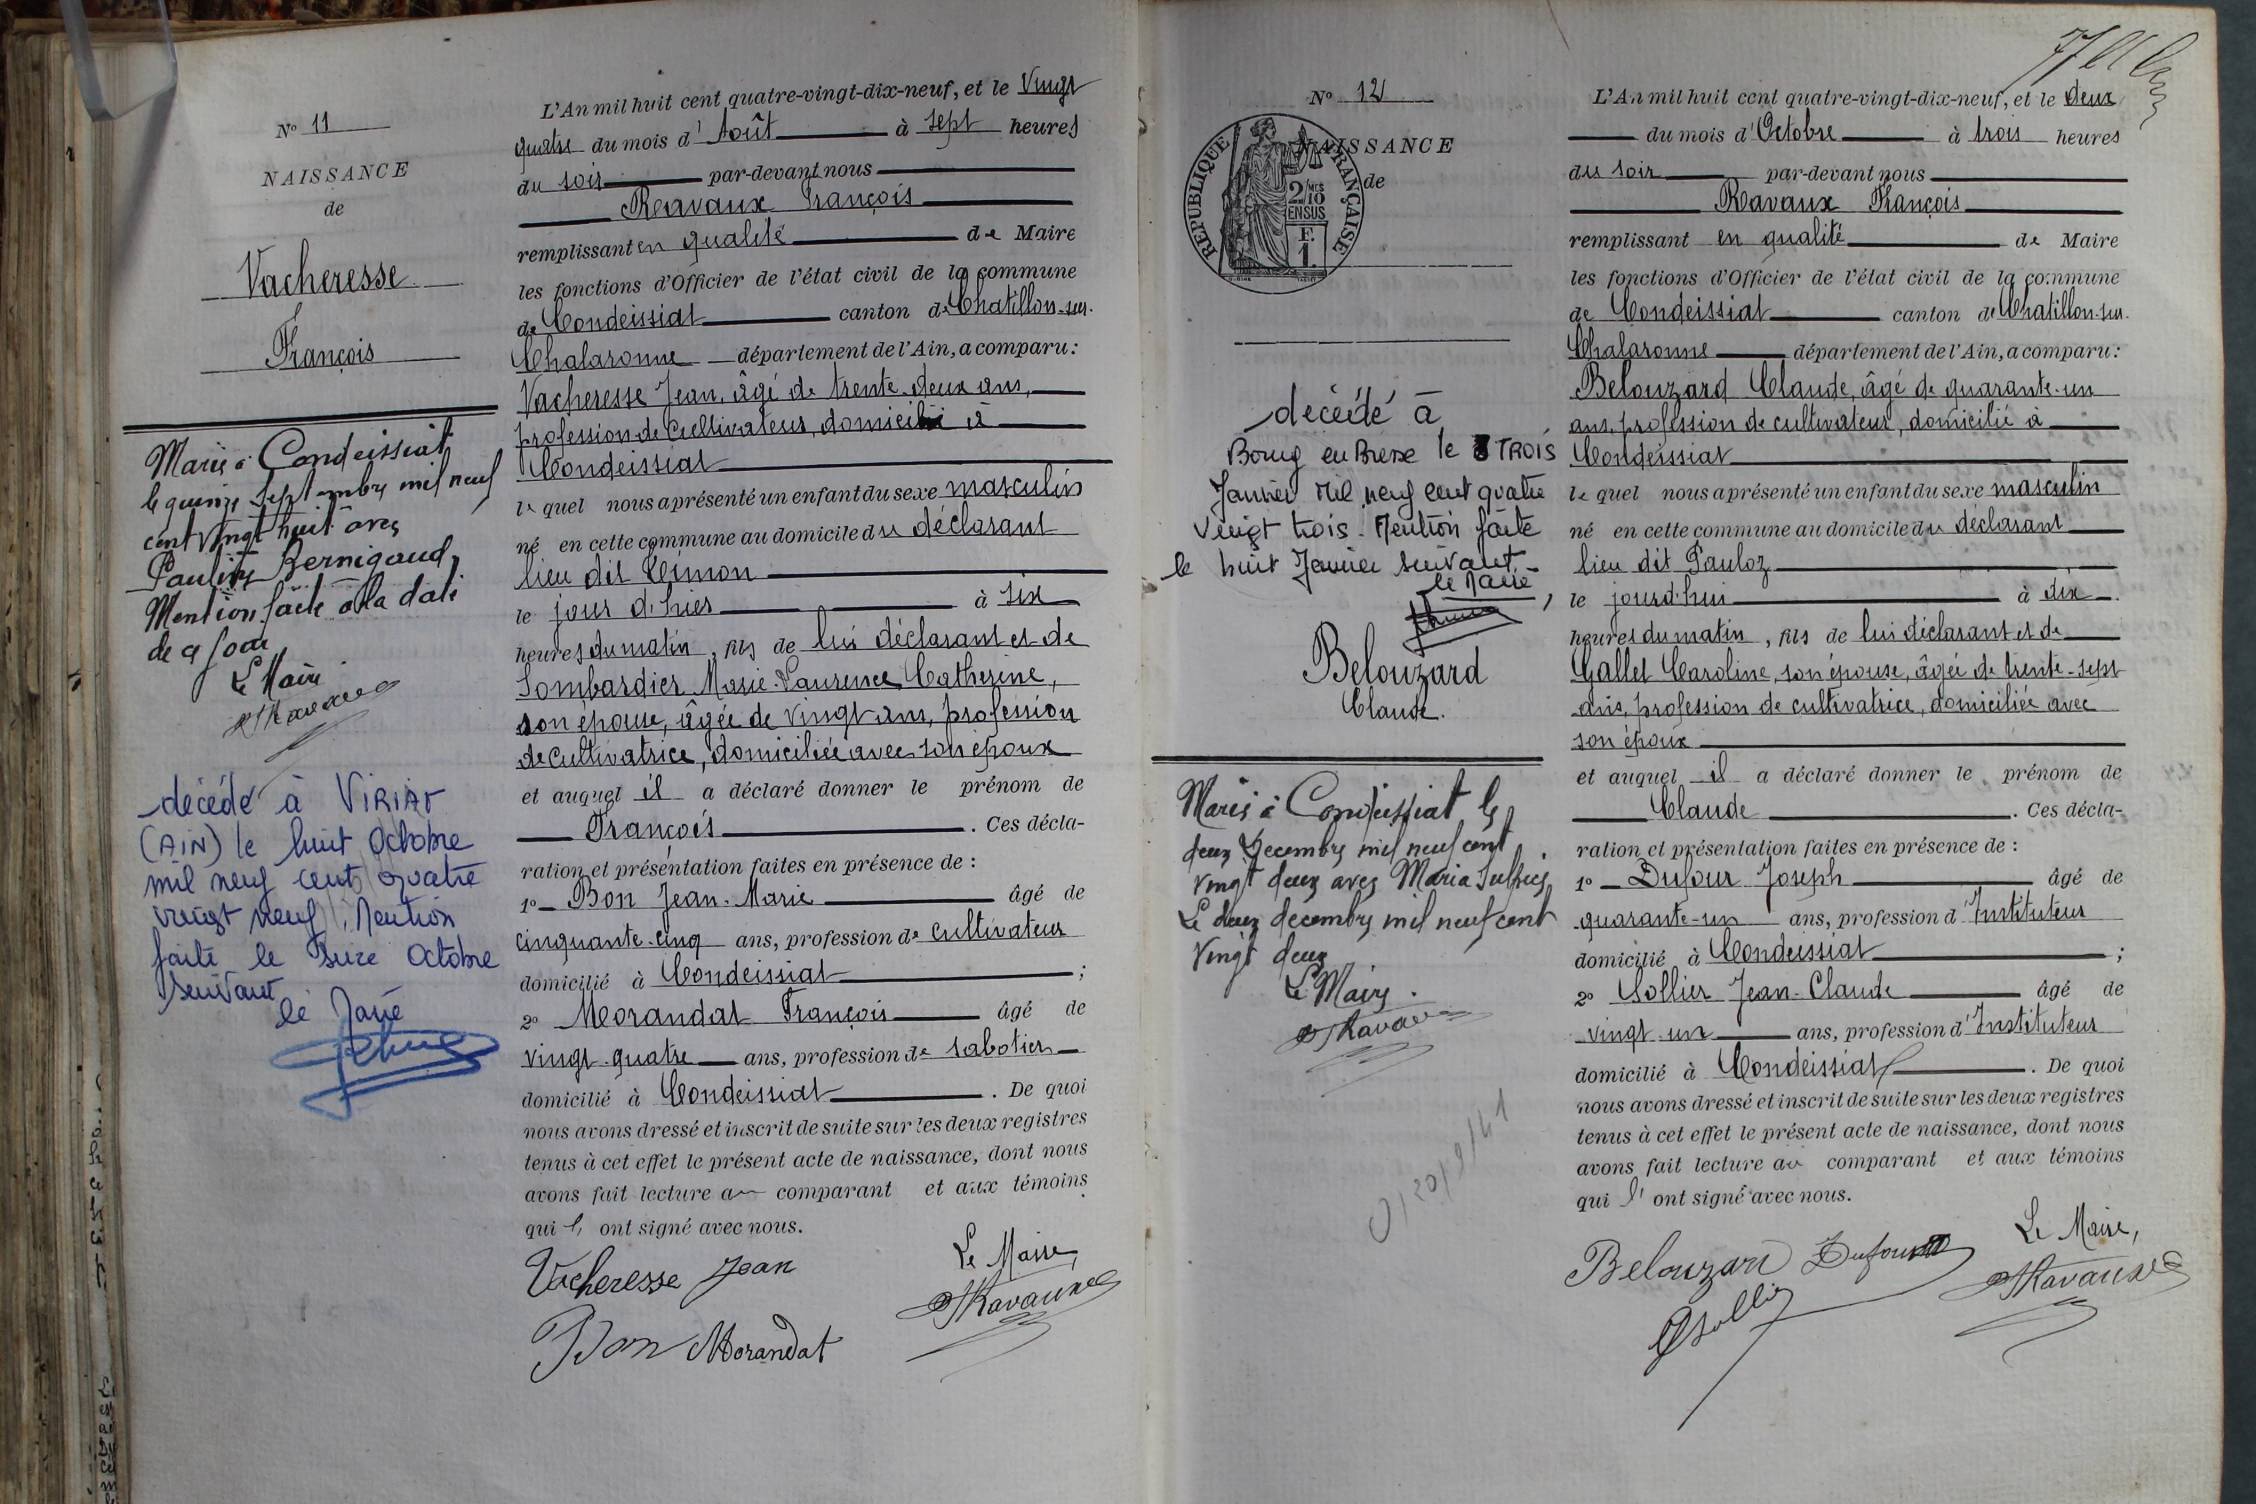 N° 11
NAISSANCE
de
Vacheresse
François
Marié à Condeissiat
le quinze Septembre mil neuf
cent vingt huit avec
Pauline Bernigaud,
Mention faite à la date
de ce jour
Le Maire
décédé à VIRIAT
(AIN) le huit Octobre
mil neuf cent quatre
vingt neuf. Mention
faite le seize Octobre
suivant
le Maire
L'An mil huit cent quatre-vingt-dix-neuf, et le Vingt
quatre du mois d'Août à sept heures
du soir par-devant nous
Ravaux François
remplissant en qualité de Maire
les fonctions d'Officier de l'état civil de la commune
de Condeissiat canton de Chatillon-sur-
Chalaronne département de l'Ain, a comparu :
Vacheresse Jean, âgé de trente-deux ans,
profession de cultivateur, domicilié à
Condeissiat
lequel nous a présenté un enfant du sexe masculin
né en cette commune au domicile du déclarant
lieu dit Cimon
le jour d'hier à six
heures du matin, fils de lui déclarant et de
Lombardier Marie-Laurence Catherine,
son épouse, âgée de vingt ans, profession
de cultivatrice, domiciliée avec son époux
et auquel il a déclaré donner le prénom de
François. Ces décla-
ration et présentation faites en présence de :
1° Bon Jean-Marie âgé de
cinquante-cinq ans, profession de cultivateur
domicilié à Condeissiat ;
2° Morandat François âgé de
vingt-quatre ans, profession de sabotier
domicilié à Condeissiat. De quoi
nous avons dressé et inscrit de suite sur les deux registres
tenus à cet effet le présent acte de naissance, dont nous
avons fait lecture au comparant et aux témoins
qui l'ont signé avec nous.
Vacheresse Jean
Le Maire,
Ravaux
Bon Morandat
N° 12
NAISSANCE
de
RÉPUBLIQUE FRANÇAISE
2/10 MES
EN SUS
F.
1.
décédé à
Bourg en Bresse le TROIS
Janvier mil neuf cent quatre
vingt trois. Mention faite
le huit Janvier suivant.
le Maire
Belouzard
Claude.
Marié à Condeissiat le
deux Décembre mil neuf cent
vingt deux avec Maria
Le deux decembre mil neuf cent
vingt deux
Le Maire.
Ravaux
L'An mil huit cent quatre-vingt-dix-neuf, et le deux
du mois d'Octobre à trois heures
du soir par-devant nous
Ravaux François
remplissant en qualité de Maire
les fonctions d'Officier de l'état civil de la commune
de Condeissiat canton de Chatillon-sur-
Chalaronne département de l'Ain, a comparu :
Belouzard Claude, âgé de quarante-un
ans, profession de cultivateur, domicilié à
Condeissiat
lequel nous a présenté un enfant du sexe masculin
né en cette commune au domicile du déclarant
lieu dit Pauloz
le jourd'hui à dix
heures du matin, fils de lui déclarant et de
Gallet Caroline, son épouse, âgée de trente-sept
ans, profession de cultivatrice, domiciliée avec
son époux
et auquel il a déclaré donner le prénom de
Claude. Ces décla-
ration et présentation faites en présence de :
1° Dufour Joseph âgé de
quarante-un ans, profession d'Instituteur
domicilié à Condeissiat ;
2° Sollier Jean-Claude âgé de
vingt-un ans, profession d'Instituteur
domicilié à Condeissiat. De quoi
nous avons dressé et inscrit de suite sur les deux registres
tenus à cet effet le présent acte de naissance, dont nous
avons fait lecture au comparant et aux témoins
qui l'ont signé avec nous.
Le Maire,
Belouzard Dufour
Ravaux